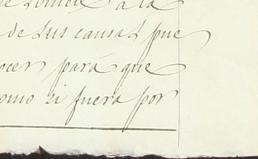 á la
de sus causas pue
ocer para que
omo si fuera por